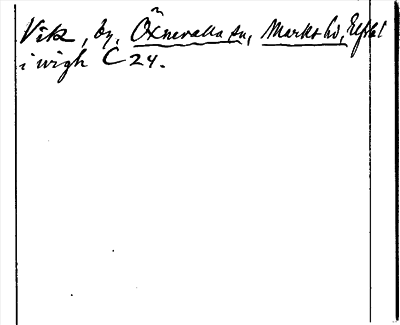 Vik, by, Öxnevalla sn, Marks hd, Elfsbl
i wigh C 24.